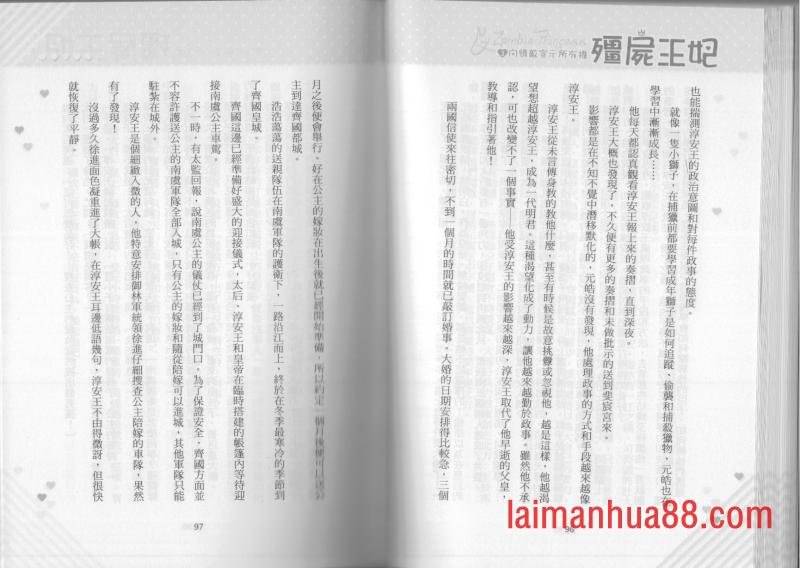 殭屍王妃
Zombie Princess
也能揣測淳安王的政治意圖和對每件政事的態度。
就像一隻小獅子，在捕獵前都要學習成年獅子是如何追蹤、偷襲和捕殺獵物，元皓也在
學習中漸漸成長……
他每天都認真觀看淳安王報上來的奏摺，直到深夜。
淳安王大概也發現了，不久便有更多的奏摺和未做批示的送到斐宸宮來。
影響都是在不知不覺中潛移默化的，元皓沒有發現，他處理政事的方式和手段越來越像
淳安王。
淳安王從未言傳身教的教他什麼，甚至有時候是故意挑釁或忽視他，越是這樣，他越渴
望想超越淳安王，成為一代明君。這種渴望化成了動力，讓他越來越勤於政事。雖然他不承
認，可也改變不了一個事實——他受淳安王的影響越來越深，淳安王取代了他早逝的父皇，
教導和指引著他！
兩國信使來往密切，不到一個月的時間就已敲訂婚事。大婚的日期安排得比較急，三個
96
月之後便會舉行。好在公主的嫁妝在出生後就已經開始準備，所以約定一個月後便可以送公
主到達齊國都城。
浩浩蕩蕩的送親隊伍在南虞軍隊的護衛下，一路沿江而上，終於在冬季最寒冷的季節到
了齊國皇城。
齊國這邊已經準備好盛大的迎接儀式，太后、淳安王和皇帝在臨時搭建的帳篷內等待迎
接南虞公主車駕。
不一時，有太監回報，說南虞公主的儀仗已經到了城門口。為了保證安全，齊國方面並
不容許護送公主的南虞軍隊全部入城，只有公主的嫁妝和隨從陪嫁可以進城，其他軍隊只能
駐紮在城外。
淳安王是個細緻入微的人，他特意安排御林軍統領徐進仔細搜查公主陪嫁的車隊，果然
有了發現！
沒過多久徐進面色凝重進了大帳，在淳安王耳邊低語幾句，淳安王不由得微訝，但很快
就恢復了平靜。
97
laimanhua88.com